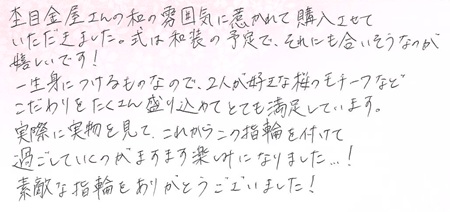 杢目金屋さんの和の雰囲気に惹かれて購入させて
いただきました。式は和装の予定で、それにも合いそうなのが
嬉しいです!
一生身につけるものなので、2人が好きな桜のモチーフなど
こだわりをたくさん盛り込めてとても満足しています。
実際に実物を見て、これからこの指輪を付けて
過ごしていくのがますます楽しみになりました…!
素敵な指輪をありがとうございました!